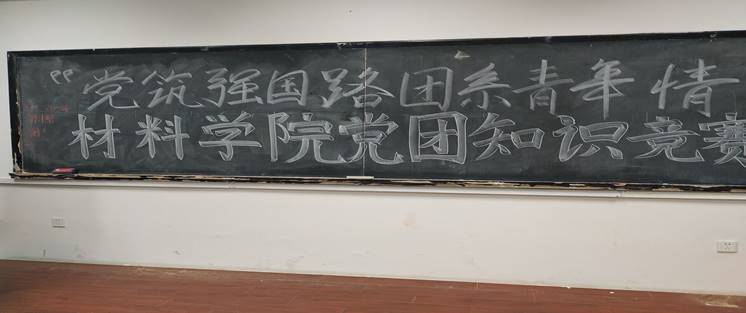 “党筑强国路 团系青年情
材料学院党团知识竞赛